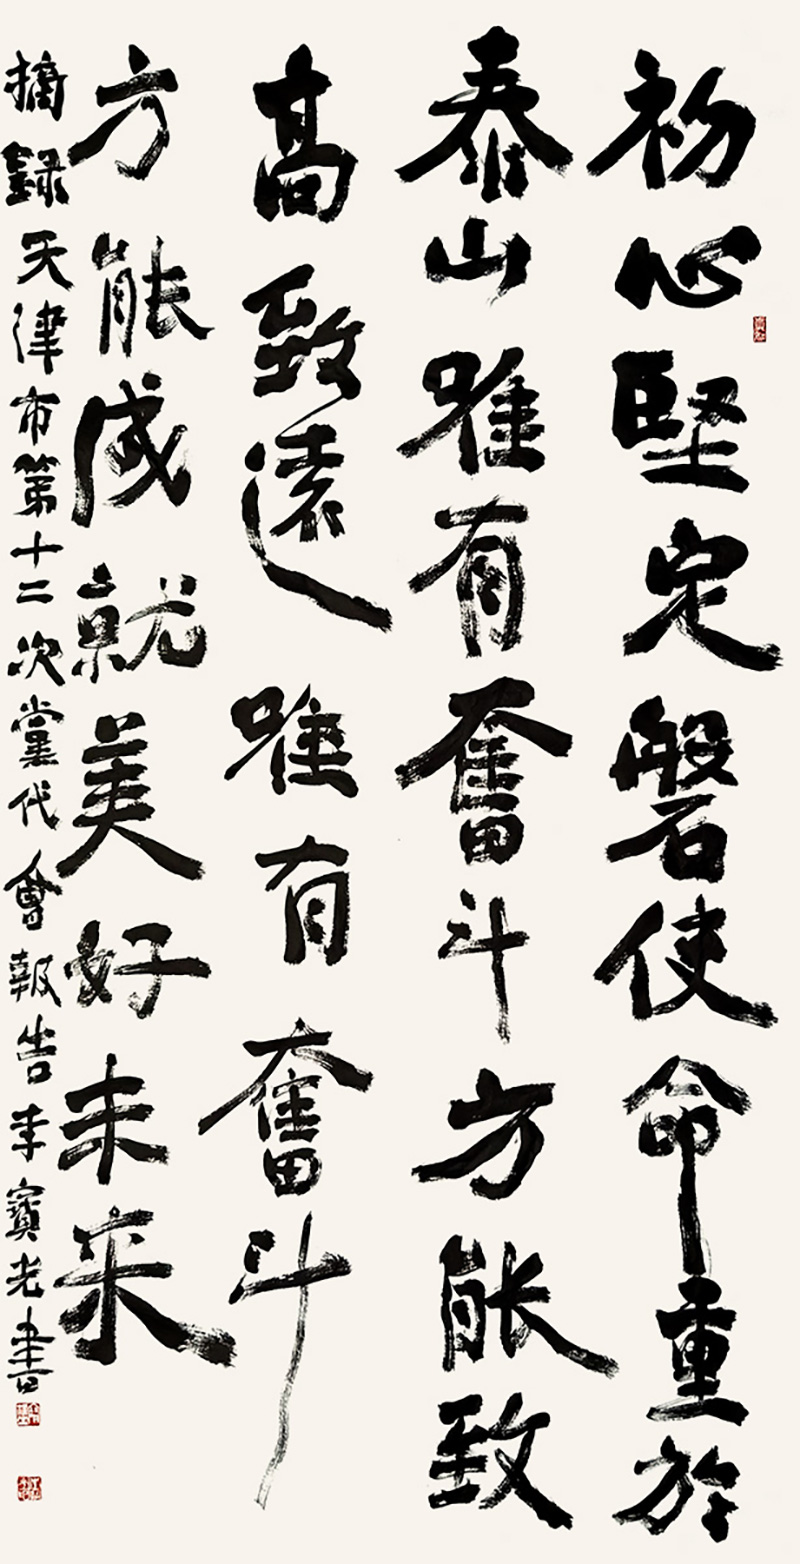 初心堅定磐使命重於
泰山唯有奮斗方能致
高致遠唯有奮斗
方能成就美好未来
摘録天津市第十二次黨代會報告李寶老書